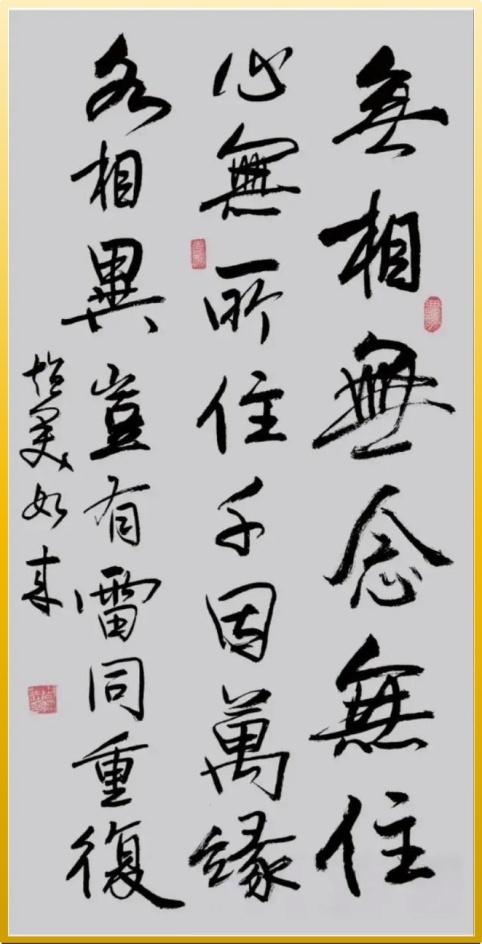 無相無念無住
心無所住千因萬緣
各相異豈有雷同重復
如来